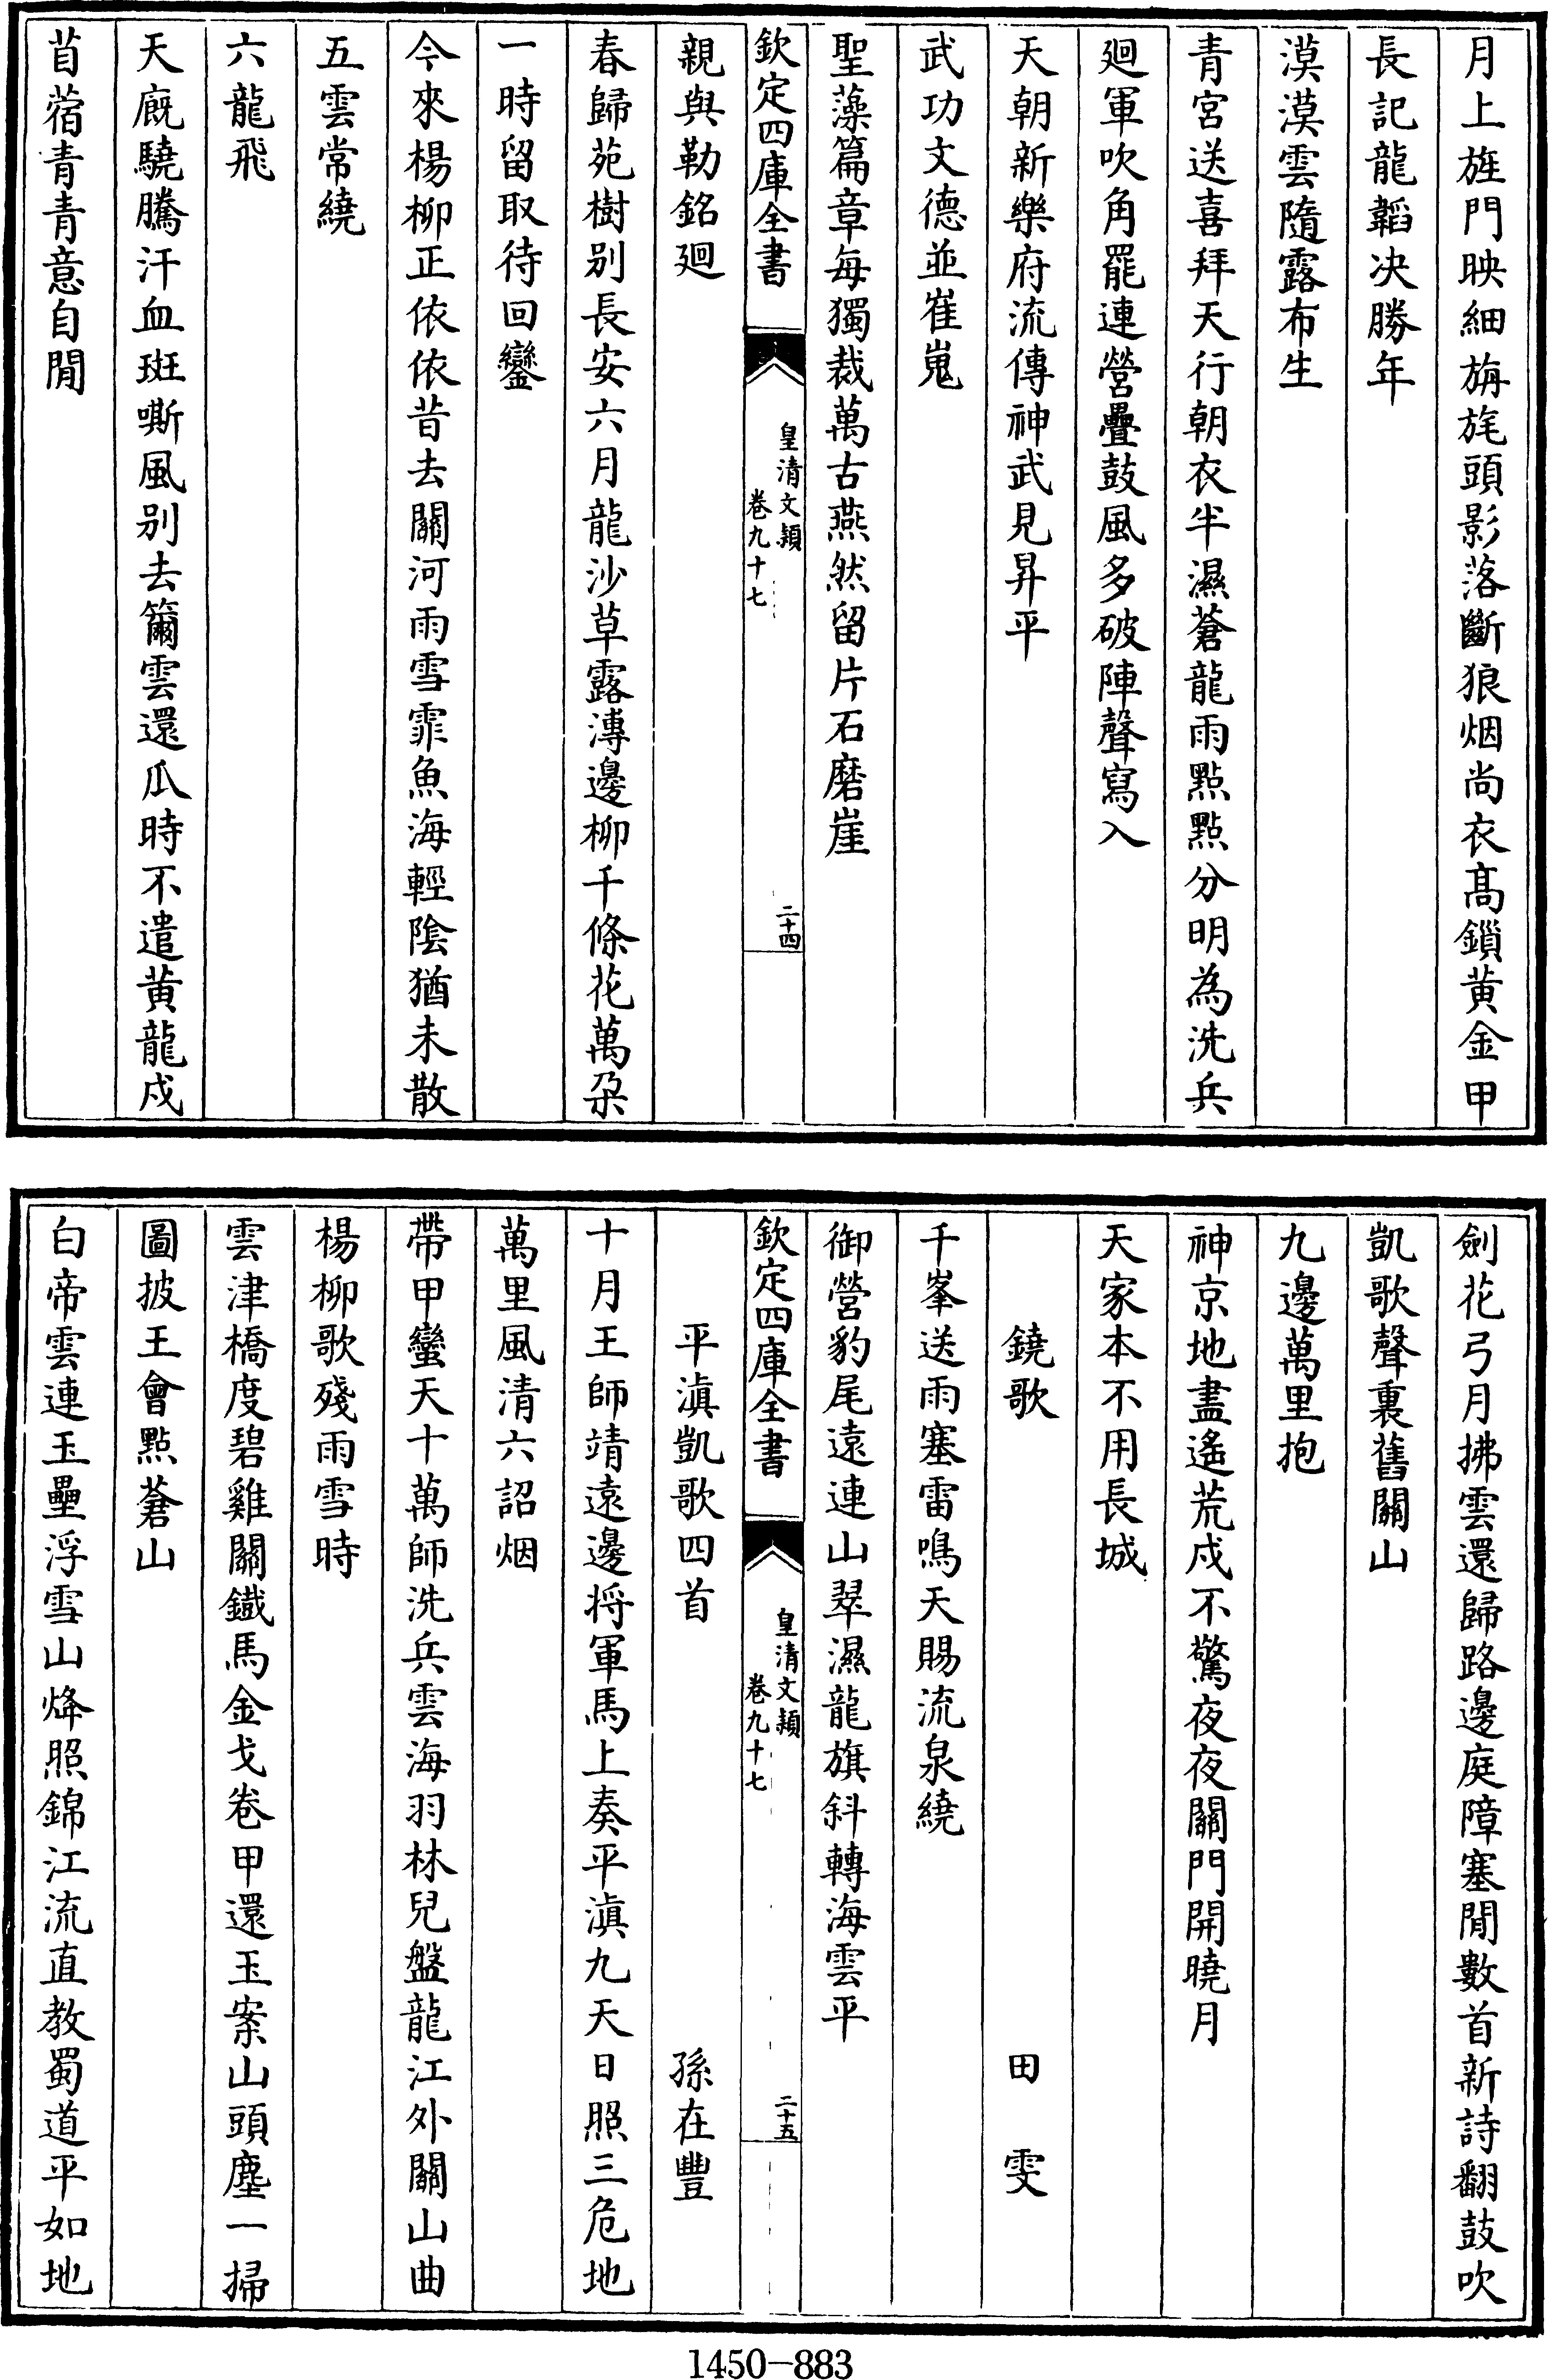 月上旌門映細旃旄頭影落斷狼烟尚衣髙鎖黄金甲
長記龍韜决勝年
漠漠雲隨露布生
青宮送喜拜天行朝衣半濕蒼龍雨點點分明為洗兵
廻軍吹角罷連營疊鼓風多破陣聲寫入
天朝新樂府流傳神武見昇平
武功文德並崔嵬
聖藻篇章每獨裁萬古燕然留片石磨崖
親與勒銘廻
欽定四庫全書
皇清文穎
卷九十七
二十四
春歸苑樹别長安六月龍沙草露漙邊柳千條花萬朶
一時留取待回鑾
今來楊柳正依依昔去關河雨雪霏魚海輕陰猶未散
五雲常繞
六龍飛
天廐驍騰汗血斑嘶風别去籋雲還瓜時不遣黄龍戍
苜蓿青青意自閒
劍花弓月拂雲還歸路邊庭障塞閒數首新詩翻鼓吹
凱歌聲裏舊關山
九邊萬里抱
神京地盡遙荒戍不驚夜夜關門開曉月
天家本不用長城
鐃歌 田雯
千峯送雨塞雷鳴天賜流泉繞
御營豹尾遠連山翠濕龍旗斜轉海雲平
欽定四庫全書
皇清文穎
卷九十七
二十五
平滇凱歌四首 孫在豐
十月王師靖遠邊將軍馬上奏平滇九天日照三危地
萬里風清六詔烟
帶甲蠻天十萬師洗兵雲海羽林兒盤龍江外關山曲
楊柳歌殘雨雪時
雲津橋度碧雞關鐵馬金戈卷甲還玉案山頭塵一掃
圖披王會點蒼山
白帝雲連玉壘浮雪山烽照錦江流直教蜀道平如地
1450-883